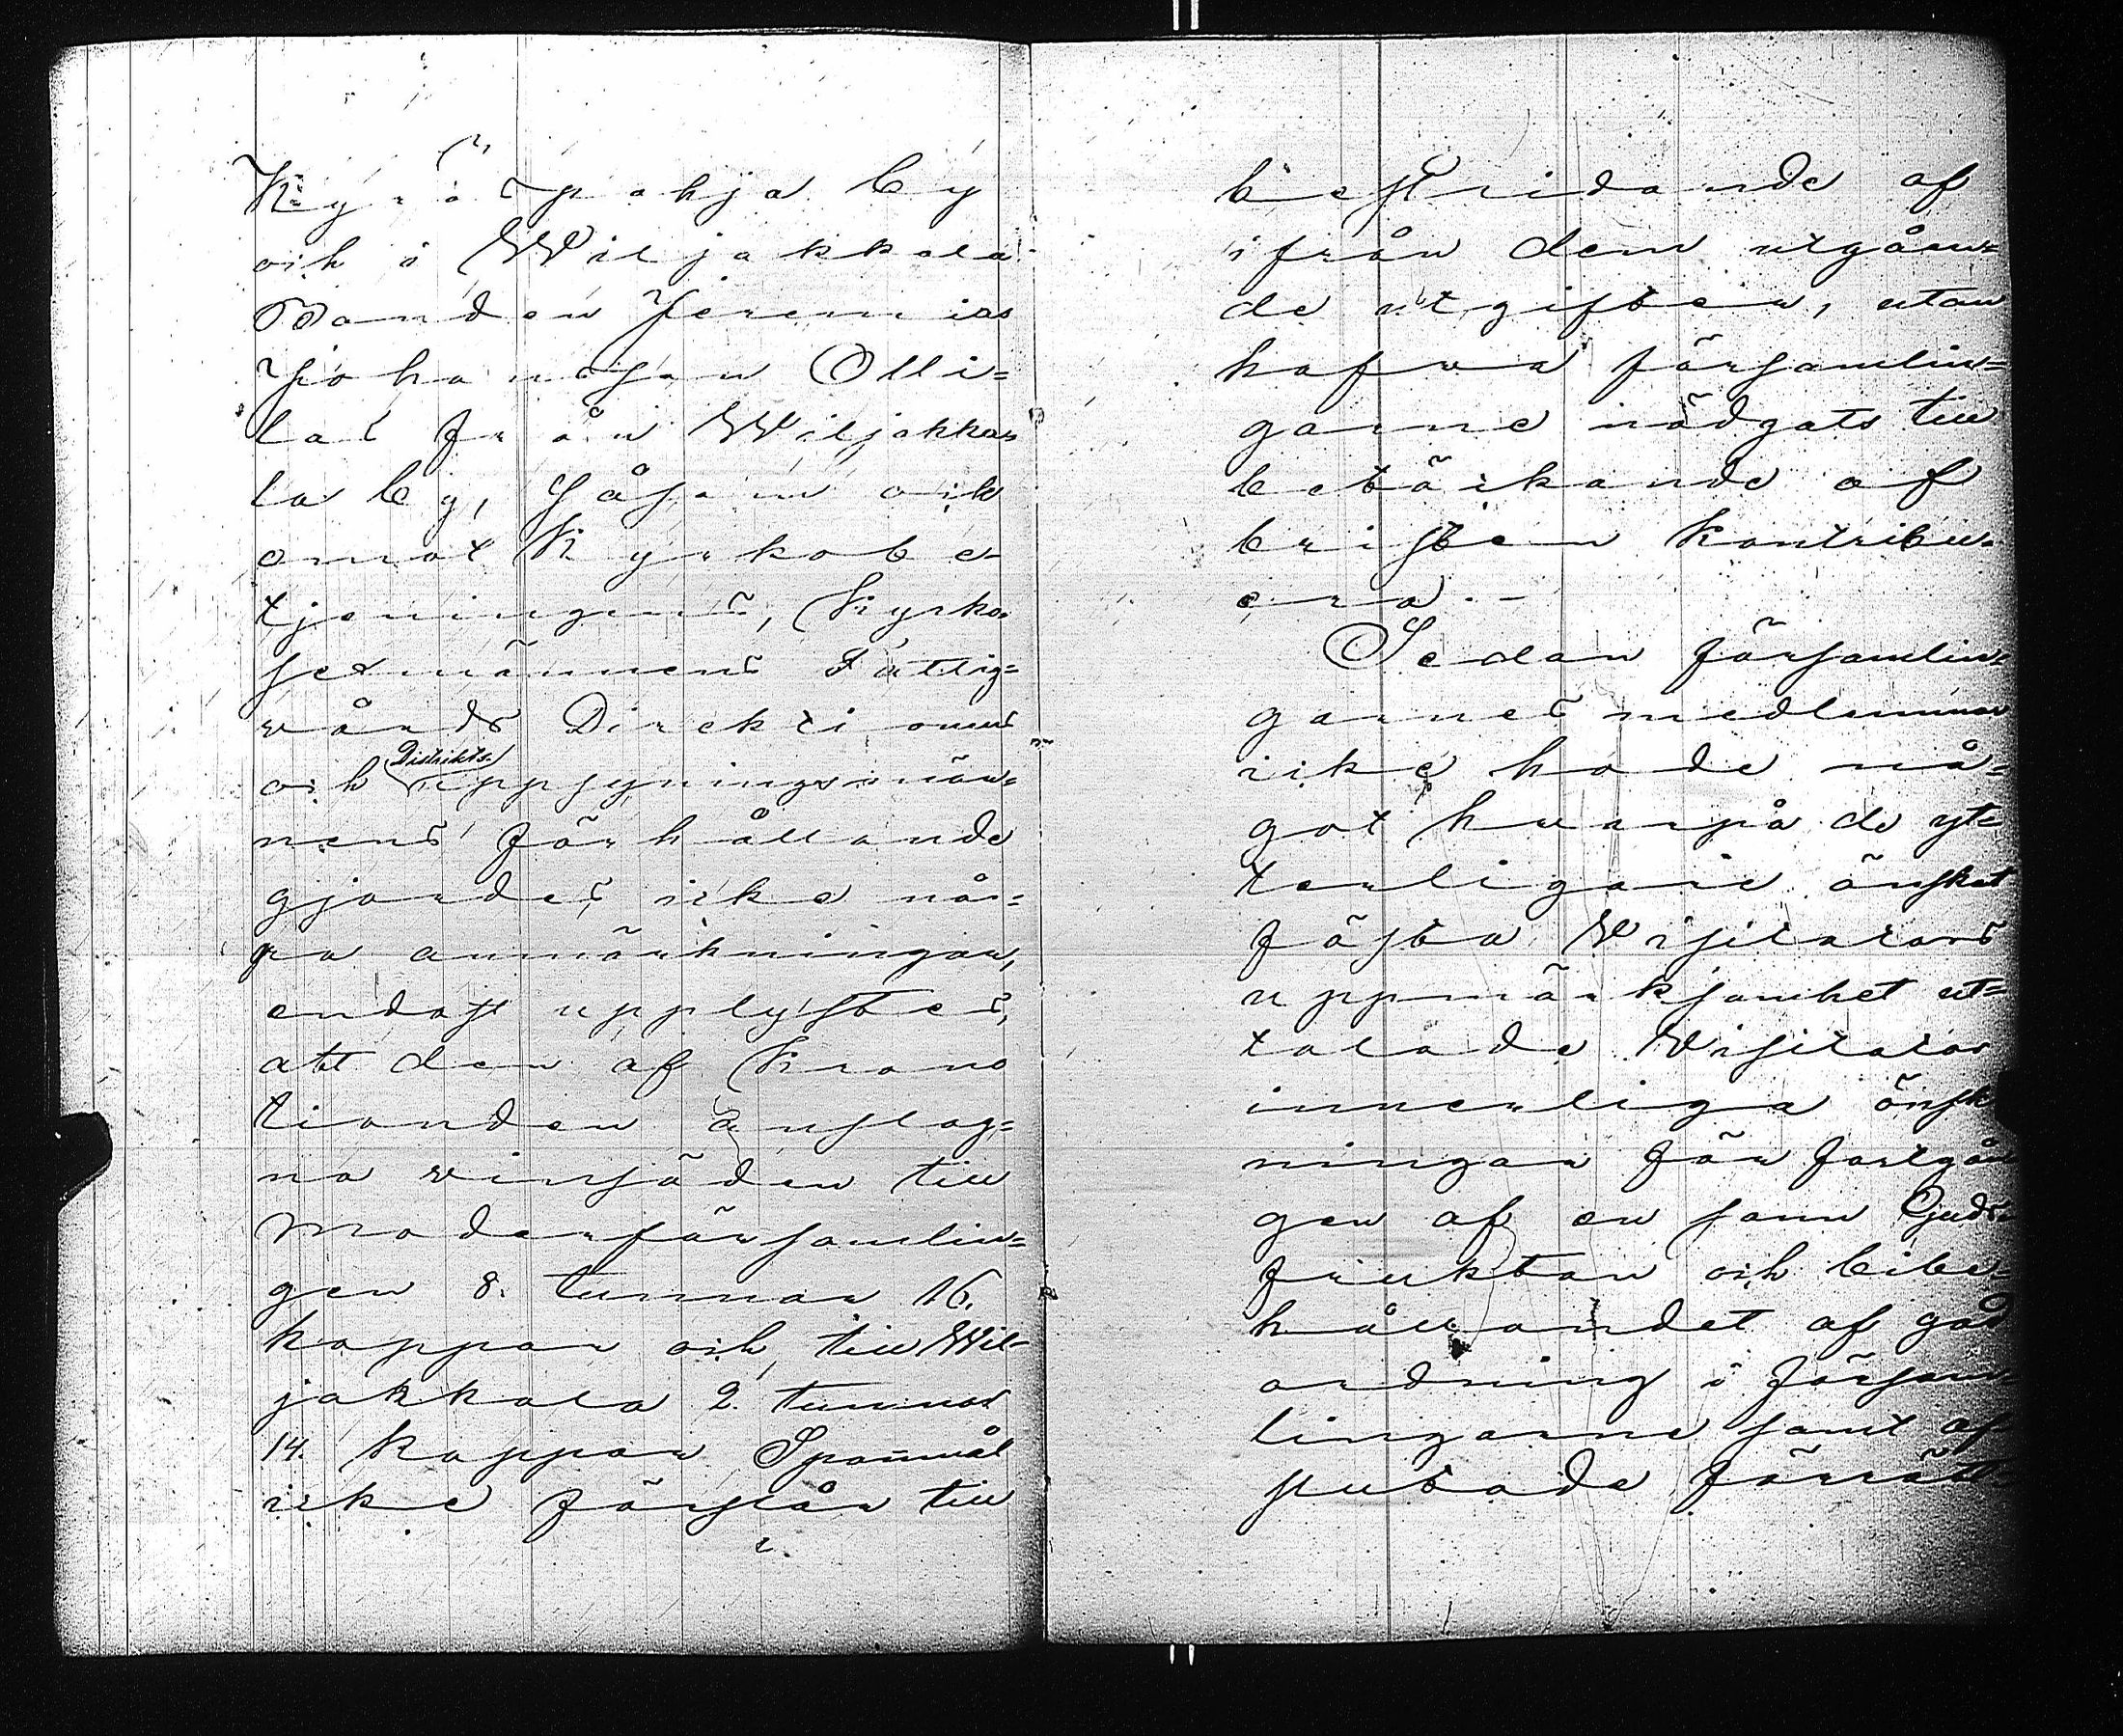 Kyröspohja by
och i Wiljakkala
Bonden Jeremias
Johansson Olli=
las från Wiljakka=
la by, Såsom ock
emot Kyrkobe-
tjeningens, Kyrko-
sexmännens Fattig=
vårds Direktionens
Distrikts-
och uppsyningsmän=
nens förhållande
gjordes icke nå=
ra anmärkningar,
endast upplystes,
att den af Krono
tionden anslag=
na vinsäden till
Moderförsamlin=
gen 8. tunnor 16.
kappar och till Wil=
jakkala 2. tunnor
14. kappar Spannmål
icke förslår till
bestridande af
ifrån dem utgåen=
de utgifter, utan
hafva församlin=
garne nödgats till
betäckande af
bristen kontribu-
era. -
Sedan församlin=
garnes medlemmar
icke hade nå=
got hvarpå de yt=
terligare önskat
fästa Visitators
uppmärksamhet ut=
talade Visitator
innerliga önsk
ningar för fortgån
gen af en sann Guds=
fruktan och bibe=
hållandet af god
ordning i försam
lingarne samt af
slutade förrätt=